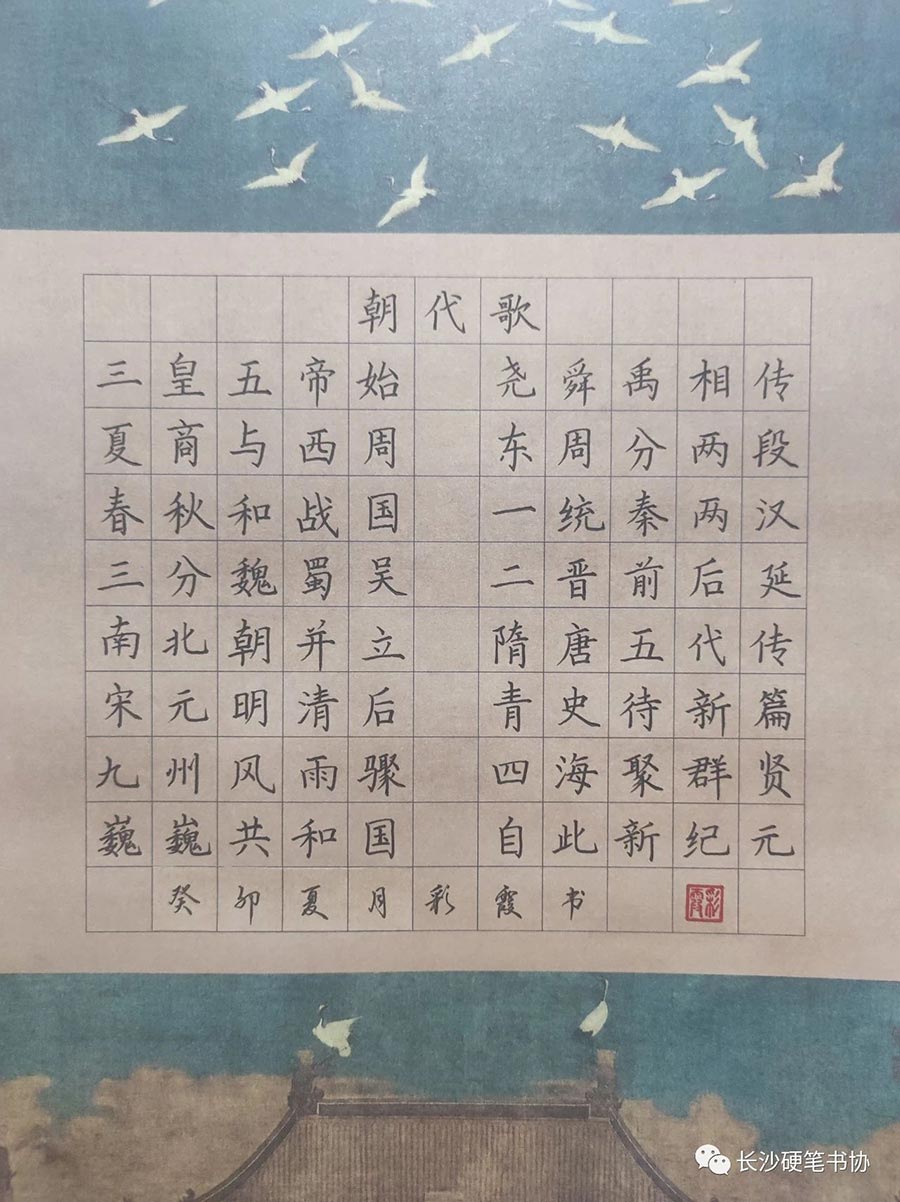 朝代歌
三皇五帝始 尧舜禹相传
夏商与西周 东周分两段
春秋和战国 一统秦两汉
三分魏蜀吴 二晋前后延
南北朝并立 隋唐五代传
宋元明清后 青史待新篇
九州风雨骤 四海聚群贤
巍巍共和国 自此新纪元
癸卯夏月彩霞书
彩霞
长沙硬笔书协